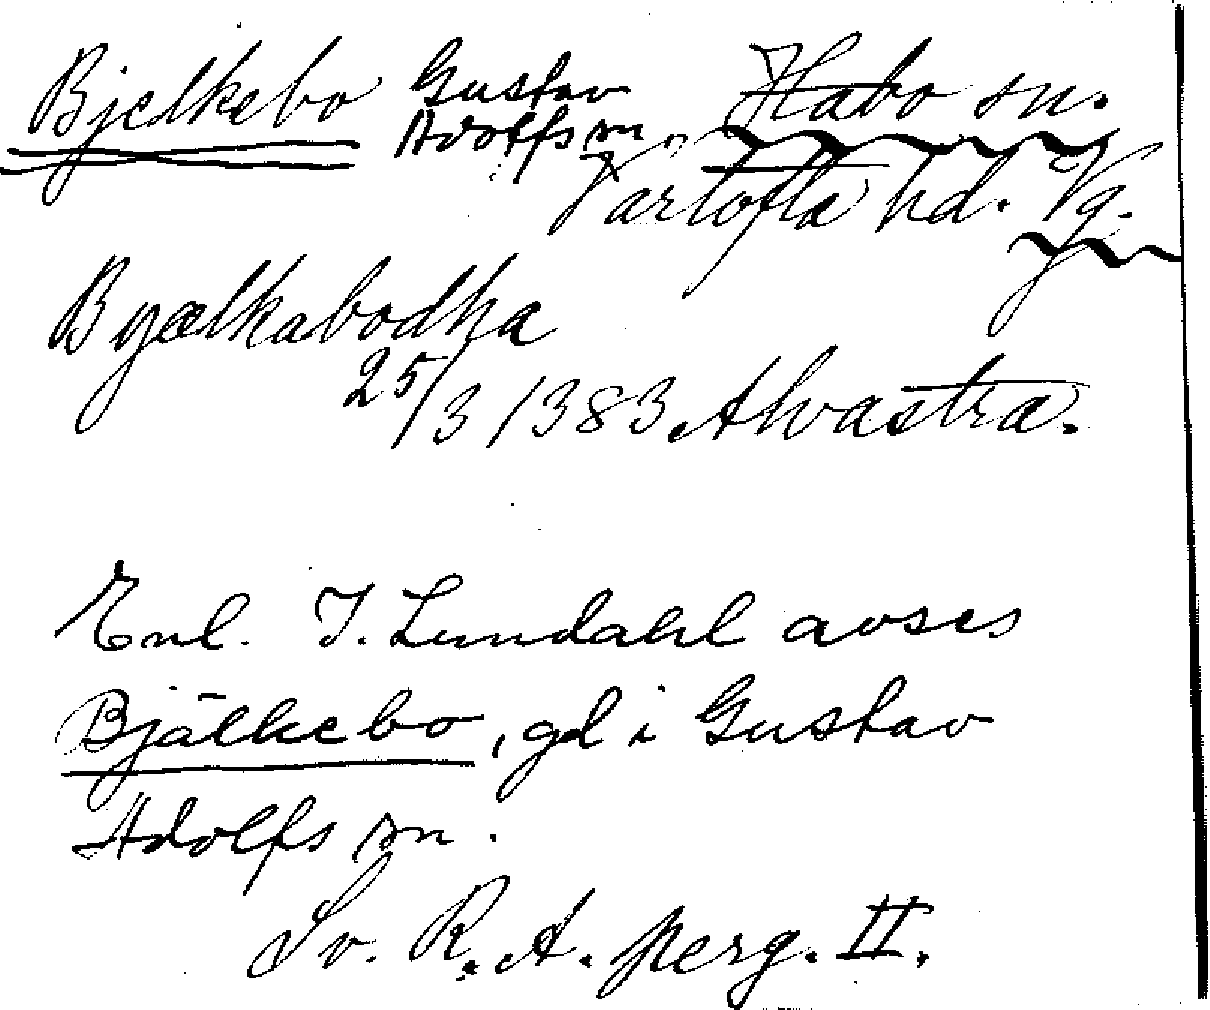 Bjelkebo Gustav Habo sn.
Adolfs sn,
Vartofta hd. Vg.
Byælkabodha
25/3 1383 Alvastra.
Enl. I. Lundahl avses
Bjälkebo, gd i Gustav
Adolfs sn.
Sv. R.A. perg. II.